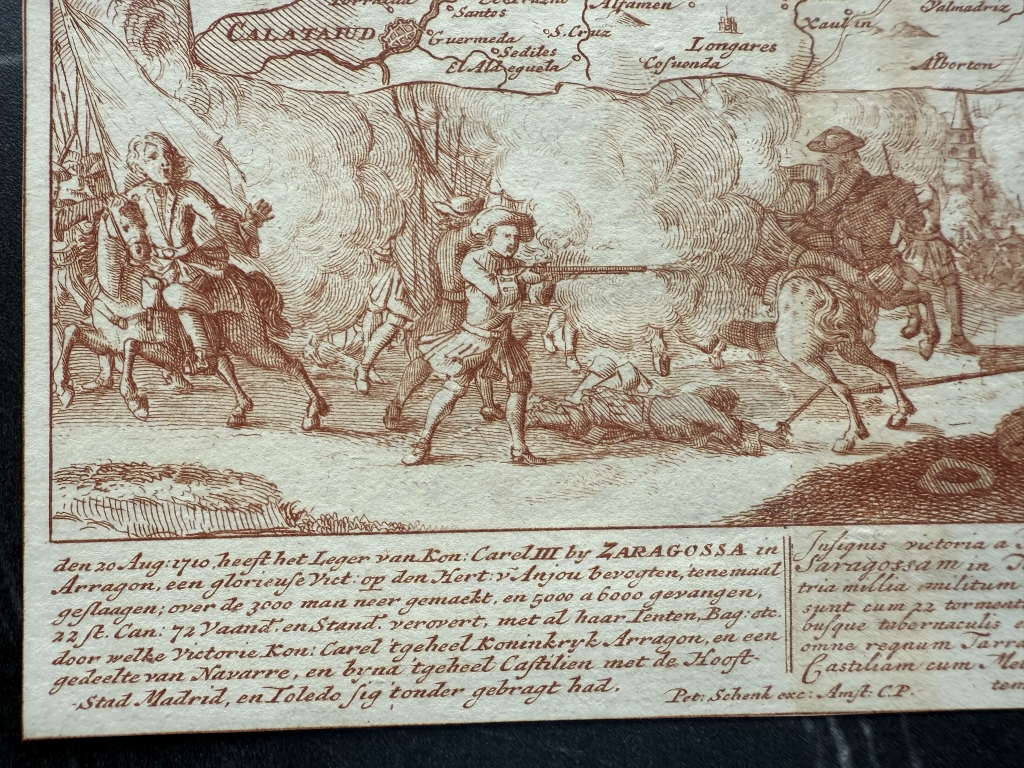 Santos
Alfamen
Xaulin
Valmadriz
CALATAIUD
Guermeda
S. Cruz
Longares
Sediles
Cosuenda
Alborton
El Aldeguela
den 20 Aug: 1710, heeft het Leger van Kon: Carel III by ZARAGOSSA in
Arragon, een glorieuse Vict: op den Hert: v. Anjou bevogten, tenemaal
geslaagen; over de 3000 man neer gemaekt, en 5000 a 6000 gevangen,
22 st. Can: 72 Vaand: en Stand: verovert, met al haar Tenten, Bag: etc.
door welke Victorie Kon: Carel 't geheel Koninkryk Arragon, en een
gedeelte van Navarre, en byna 't geheel Castilien met de Hooft-
-Stad Madrid, en Toledo sig t'onder gebragt had.
Insignis victoria a
Saragossam in
tria millia militum
sunt cum 22 torment
busque tabernaculis
omne regnum Tarr
Castiliam cum
tem
Pet: Schenk exc: Amst: C.P.